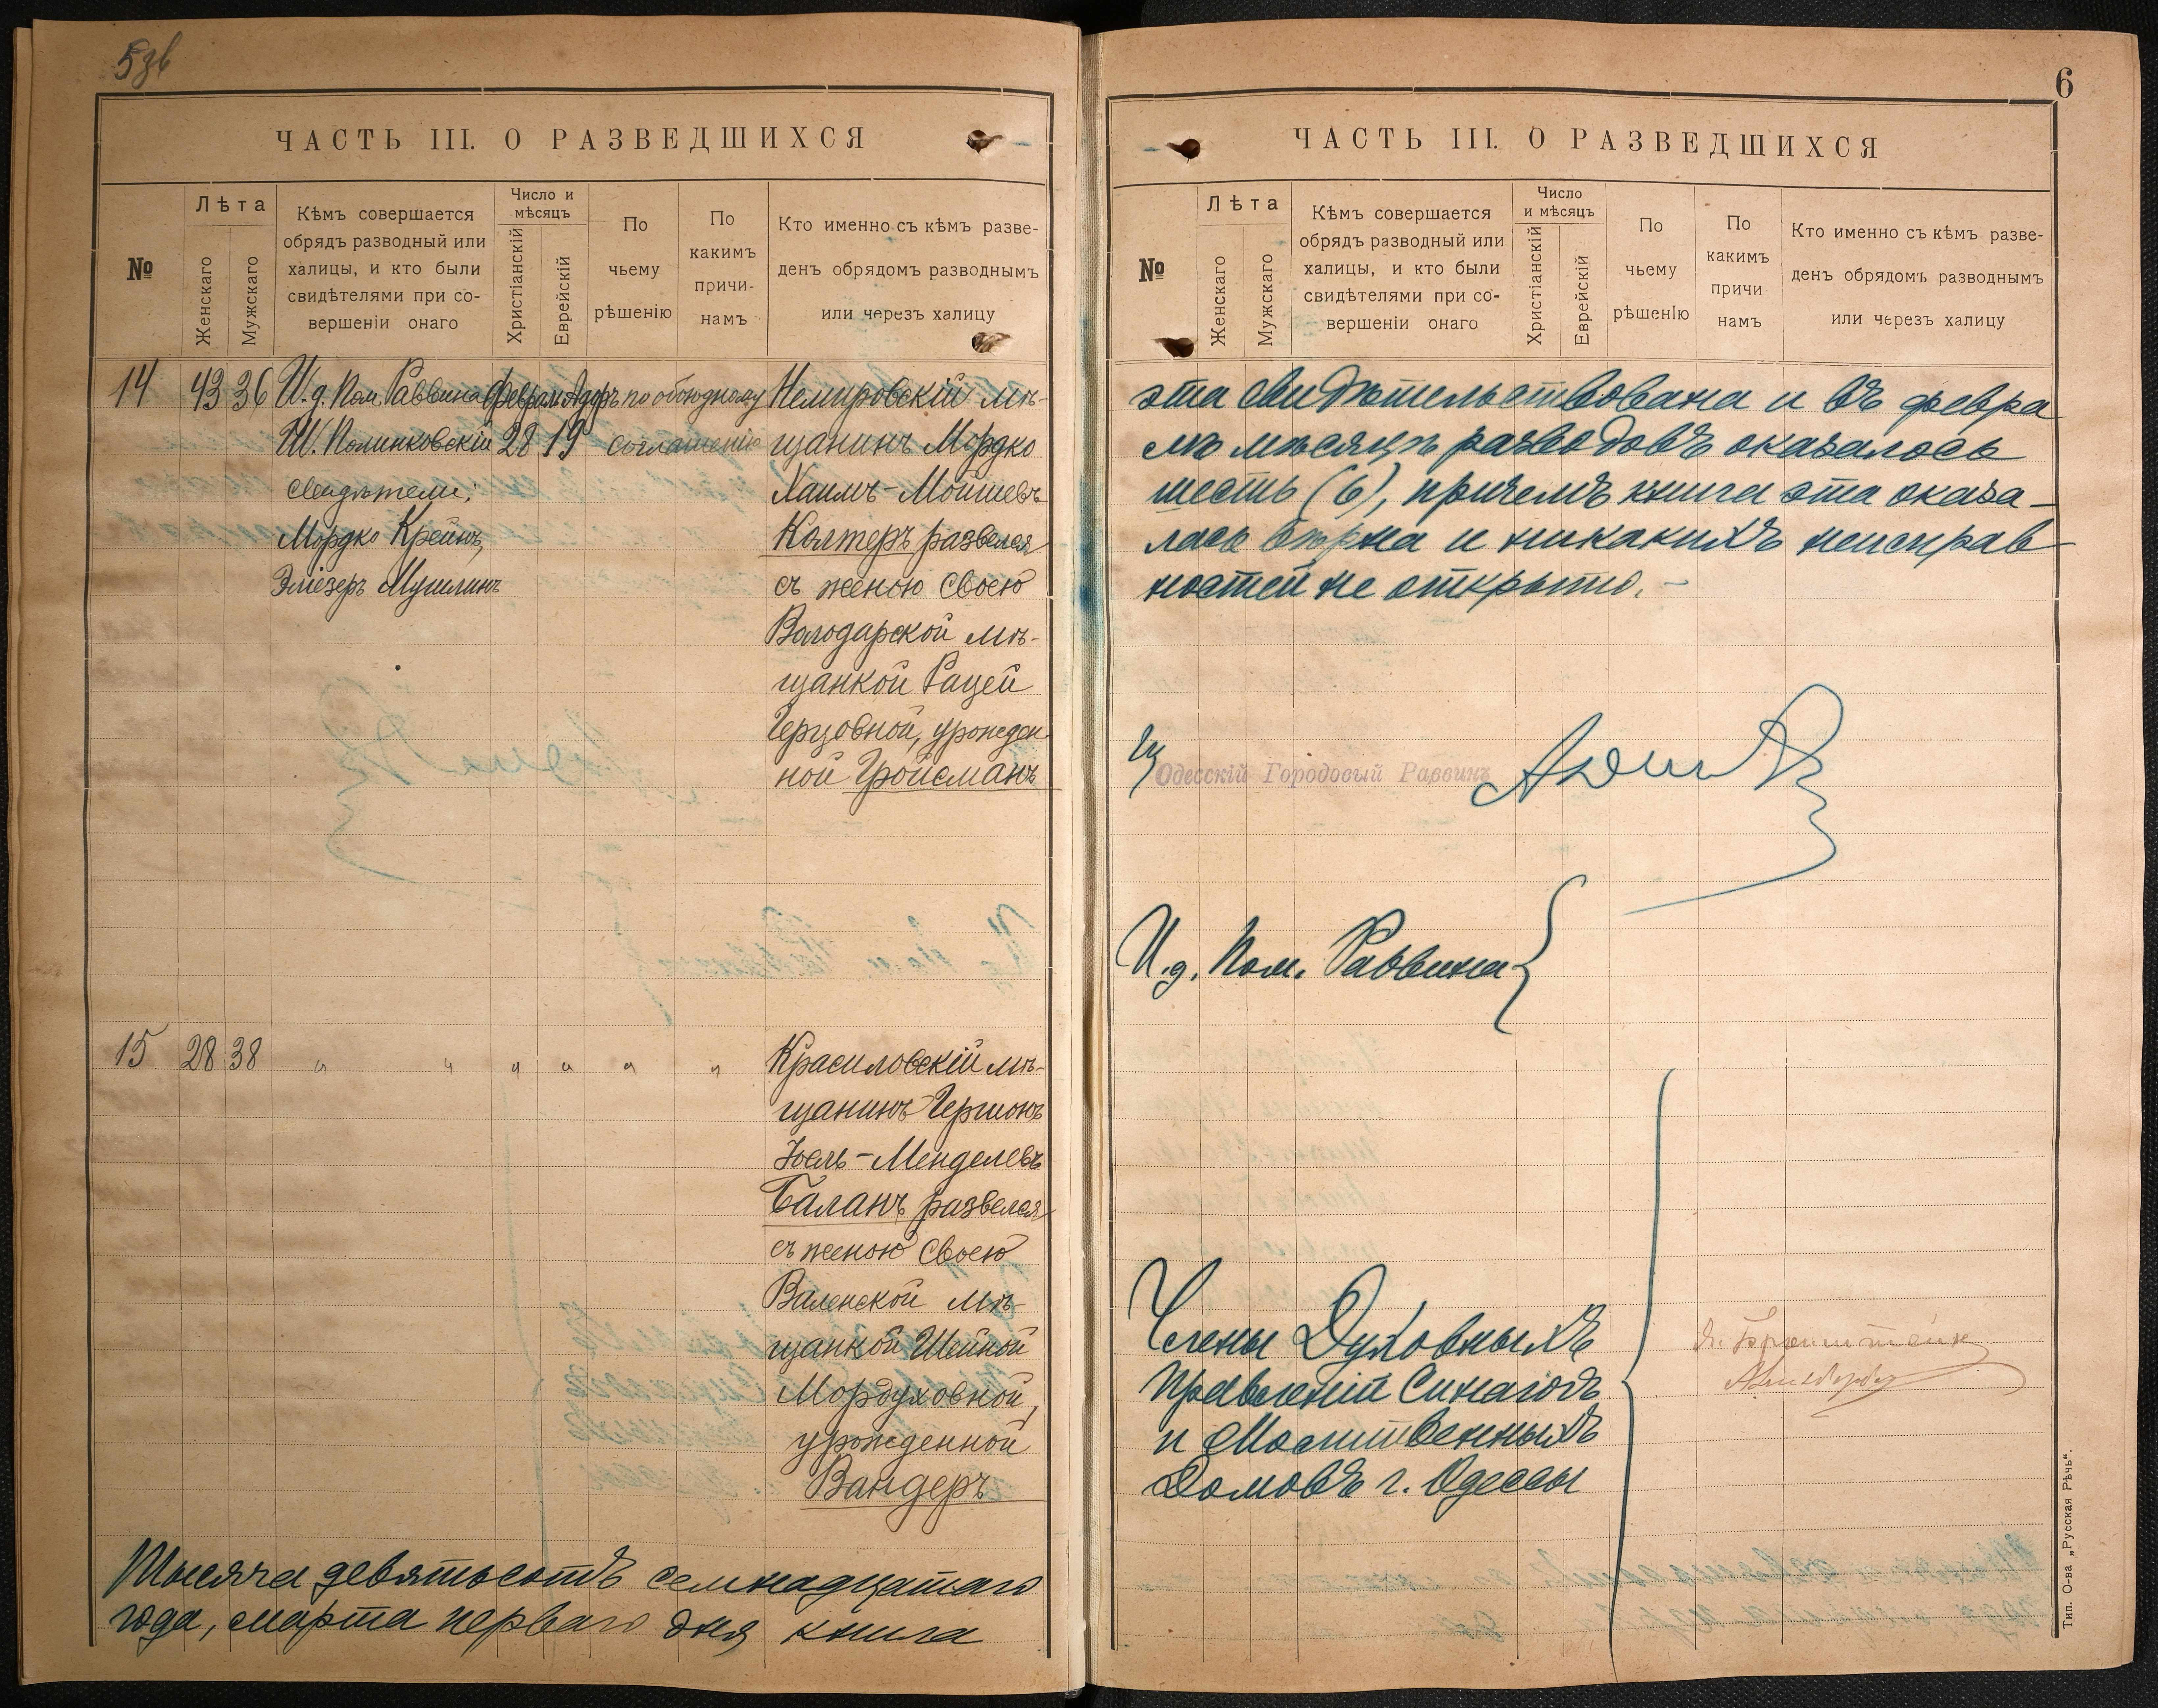 5 об
ЧАСТЬ III. О РАЗВЕДШИХСЯ
№
Лѣта
Женскаго
Мужскаго
Кѣмъ совершается
обрядъ разводный или
халицы, и кто были
свидѣтелями при со-
вершеніи онаго
Число и
мѣсяцъ
Христіанскій
Еврейскій
По
чьему
рѣшенію
По
какимъ
причи-
намъ
Кто именно съ кѣмъ разве-
денъ обрядомъ разводнымъ
или черезъ халицу
14 43 36 И.д. Пом. Раввина Февраль Адаръ по обоюдному Немировскій мѣ-
Ш. Полинковскій 28 19 соглашенію щанинъ Мордко
свидѣтели: Хаимъ-Мошевъ
Мордко Крейнъ, Колтеръ развелся
Эліезеръ Мушлинъ съ женою своею
Володарской мѣ-
щанкой Рацей
Герцовной, урожден
ной Гройсманъ
15 28 38 " " " " " " Красиловскій мѣ-
щанинъ Гершонъ
Іоель-Менделевъ
Баланъ развелся
съ женою своею
Валенской мѣ-
щанкой Шейной
Мордуховной,
урожденной
Вандеръ
Тысяча девятьсотъ семнадцатаго
года, марта перваго дня книга
6
ЧАСТЬ III. О РАЗВЕДШИХСЯ
№
Лѣта
Женскаго
Мужскаго
Кѣмъ совершается
обрядъ разводный или
халицы, и кто были
свидѣтелями при со-
вершеніи онаго
Число
и мѣсяцъ
Христіанскій
Еврейскій
По
чьему
рѣшенІю
По
какимъ
причи
намъ
Кто именно съ кѣмъ разве-
денъ обрядомъ разводнымъ
или черезъ халицу
эта свидѣтельствована и въ февра
лѣ мѣсяцѣ разводовъ оказалось
шесть (6), причемъ книга эта оказа-
лась вѣрна и никакихъ неисправ
ностей не открыто. -
Одесскій Городовый Раввинъ
И.д. Пом. Раввина
Члены Духовныхъ
Правленій Синагогъ
и Молитвенныхъ
Домовъ г. Одессы
Тип. О-ва „Русская Рѣчь“.